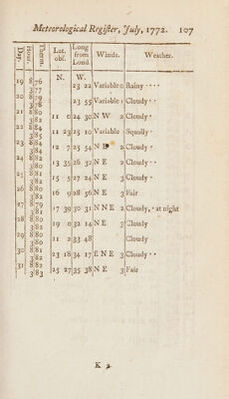 Meteorological Register, July, 1772. 107
Day. Hour. Therm. Lat. obs. Long from Lond. Winds. Weather.
N. W.
19 8 76
3 77 23 22 Variable 0 Rainy
20 8 79
3 78 23 55 Variable 1 Cloudy
21 8 80
3 82 11 0 24 30 N W 2 Cloudy
22 8 84
3 85 11 23 25 10 Variable Squally
23 8 84
3 84 12 7 25 54 N E 2 Cloudy
24 8 82
3 82 13 35 26 32 N E 2 Cloudy
25 8 80
3 81 15 5 27 24 N E 3 Cloudy
26 8 80
3 82 16 9 28 56 N E 3 Fair
27 8 79
3 81 17 39 30 31 N N E 2 Cloudy, at night
28 8 80
3 82 19 0 32 14 N E 3 Cloudy
29 8 80
3 82 21 2 33 48 Cloudy
30 8 81
3 82 23 18 34 17 E N E 3 Cloudy
31 8 82
3 83 25 27 35 38 N E 3 Fair
K 2